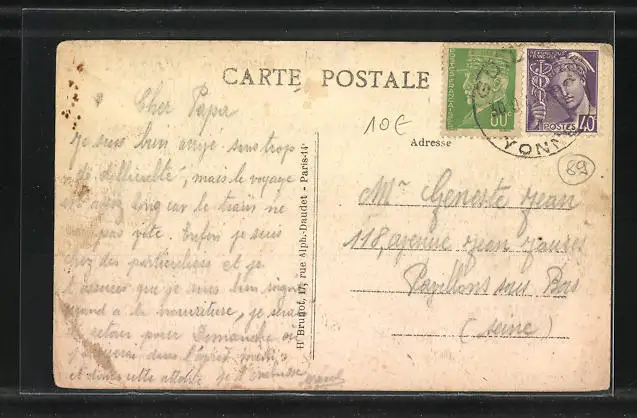 CARTE POSTALE
Cher Papa
Je suis bien arrivé sans trop
de difficulté, mais le voyage
est assez long car le train ne
pas vite. Enfin je suis
chez des particuliers et je
t'assures que je suis bien soigné
quand a la nourriture, je serai
de retour pour Dimanche
dans l'après midi
et dans cette attente je t'embrasse
H. Brunot, 17, rue Alph.-Daudet - Paris-14e
10€
Adresse
89
Mr Geneste Jean
118, avenue Jean Jaurès
Pavillons sous Bois
(Seine)
80c
RÉPUBLIQUE FRANÇAISE
POSTES 40c
YONNE